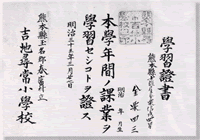 學習證書
熊本縣
金栗四三
明治 年 月生
本學年間ノ課業ヲ
學習セシコトヲ證ス
明治三十 年三月二十 日
熊本縣玉名郡春富村立
吉地尋常小學校